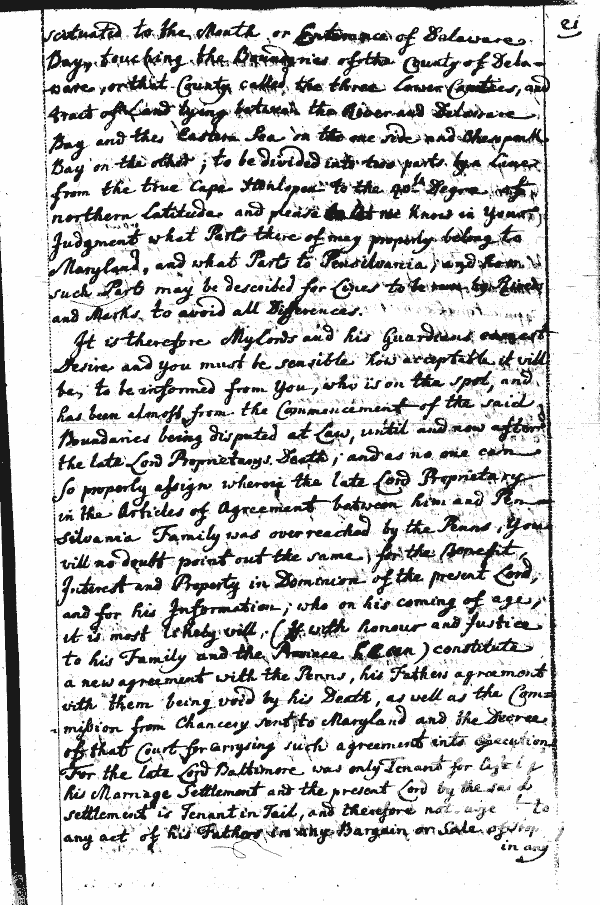 21
scituated to the Mouth or Enterance of Delaware
Bay, touching the Boundaries of the County of Dela-
ware, or that County called the three Lower Counties, and
tract of Land lying between the River and Delaware
Bay and the Eastern Sea on the one side and Chesapeak
Bay on the other; to be divided into two parts by a Line
from the true Cape Henlopen to the 40th Degree of
northern Latitude and please to let me know in Your
Judgment what Parts there of may properly belong to
Maryland, and what Parts to Pensilvania, and how
such Parts may be described for Lines to be run by Rivers
and Marks to avoid all Differences.
It is therefore My Lords and his Guardians earnest
Desire and you must be sensible how acceptable it will
be, to be informed from You, who is on the spot, and
has been almost from the Commencement of the said
Boundaries being disputed at Law, until and now after
the late Lord Proprietarys Death; and as no one can
So properly assign wherein the late Lord Proprietary
in the Articles of Agreement between him and Pen-
silvania Family was overreached by the Penns, You
will no doubt point out the same, for the Benefit,
Interest and Property in Dominion of the present Lord,
and for his Information; who on his coming of age,
it is most likely will, (If with honour and Justice
to his Family and the Province he can) constitute
a new agreement with the Penns, his Fathers agreement
with them being void by his Death, as well as the Com-
mission from Chancery sent to Maryland and the Decree
of that Court for carrysing such agreement into execution
For the late Lord Baltimore was only Tenant for Life by
his Marriage Settlement and the present Lord by the said
settlement is Tenant in Tail, and therefore not to
any act of his Fathers in any Bargain or Sale of
in any